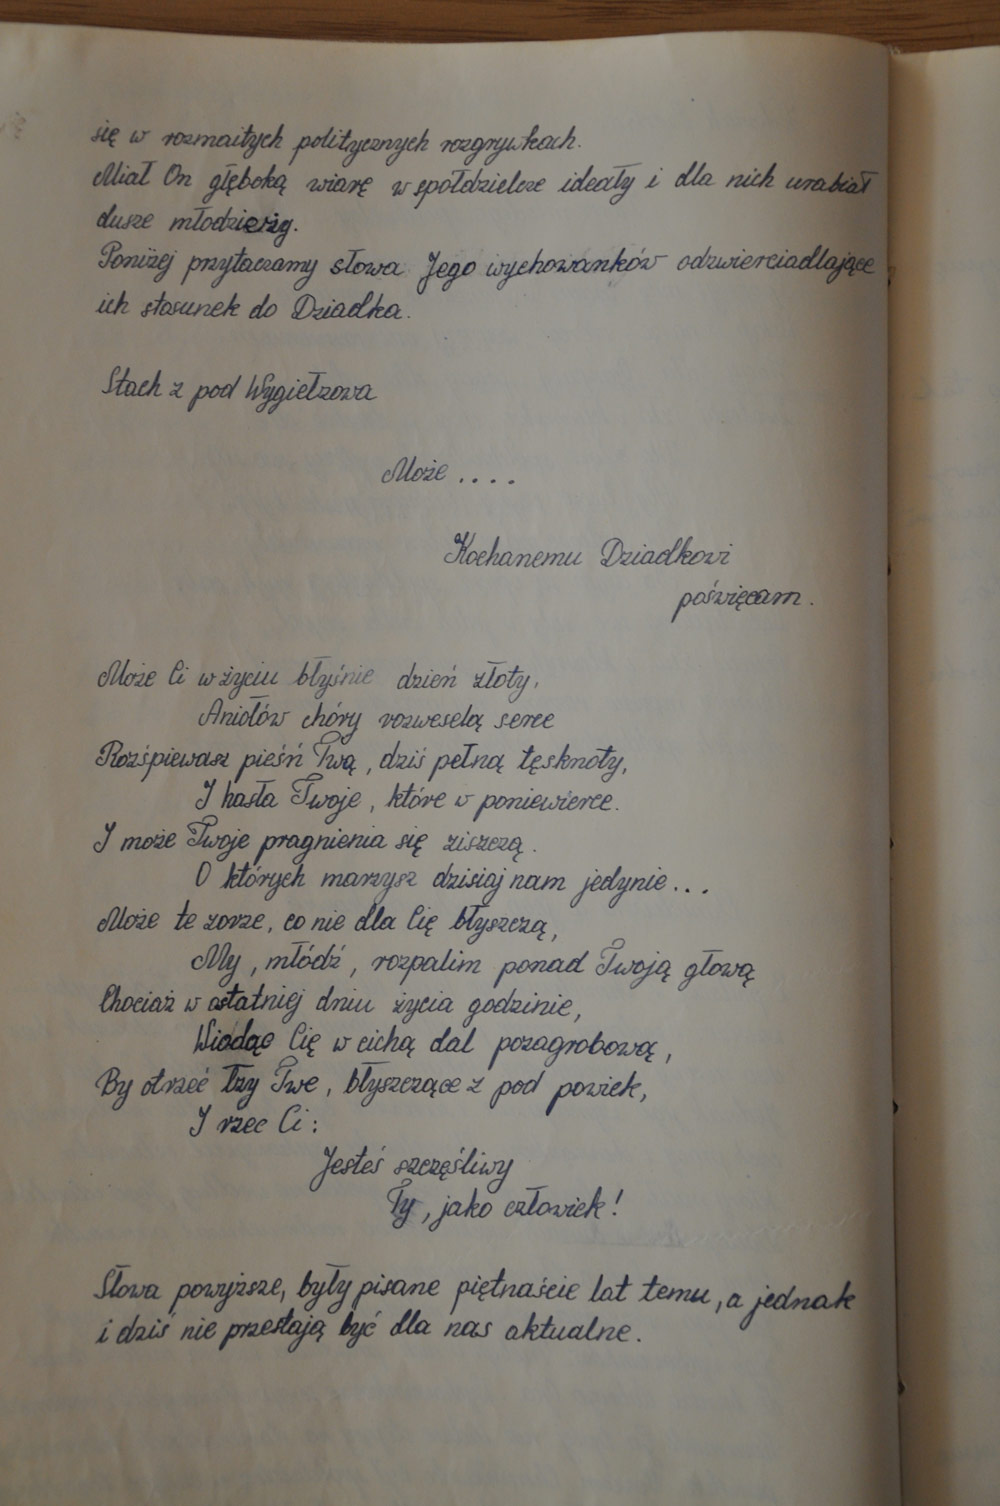 się w rozmaitych politycznych rozgrywkach.
Miał On głęboką wiarę w spółdzielcze ideały i dla nich urabiał
dusze młodzieży.
Poniżej przytaczamy słowa Jego wychowanków odzwierciadlające
ich stosunek do Dziadka.
Stach z pod Wygiełzowa
Może ....
Kochanemu Dziadkowi
poświęcam.
Może Ci w życiu błyśnie dzień złoty,
Aniołów chóry rozweselą serce
Rozśpiewasz pieśń Twą, dziś pełną tęsknoty,
I hasła Twoje, które w poniewierce.
I może Twoje pragnienia się ziszczą.
O których marzysz dzisiaj nam jedynie...
Może te zorze, co nie dla Cię błyszczą,
My, młódź, rozpalim ponad Twoją głową
Chociaż w ostatniej dniu życia godzinie,
Wiodąc Cię w cichą dal pozagrobową,
By otrzeć łzy Twe, błyszczące z pod powiek,
I rzec Ci:
Jesteś szczęśliwy
Ty, jako człowiek!
Słowa powyższe, były pisane piętnaście lat temu, a jednak
i dziś nie przestają być dla nas aktualne.